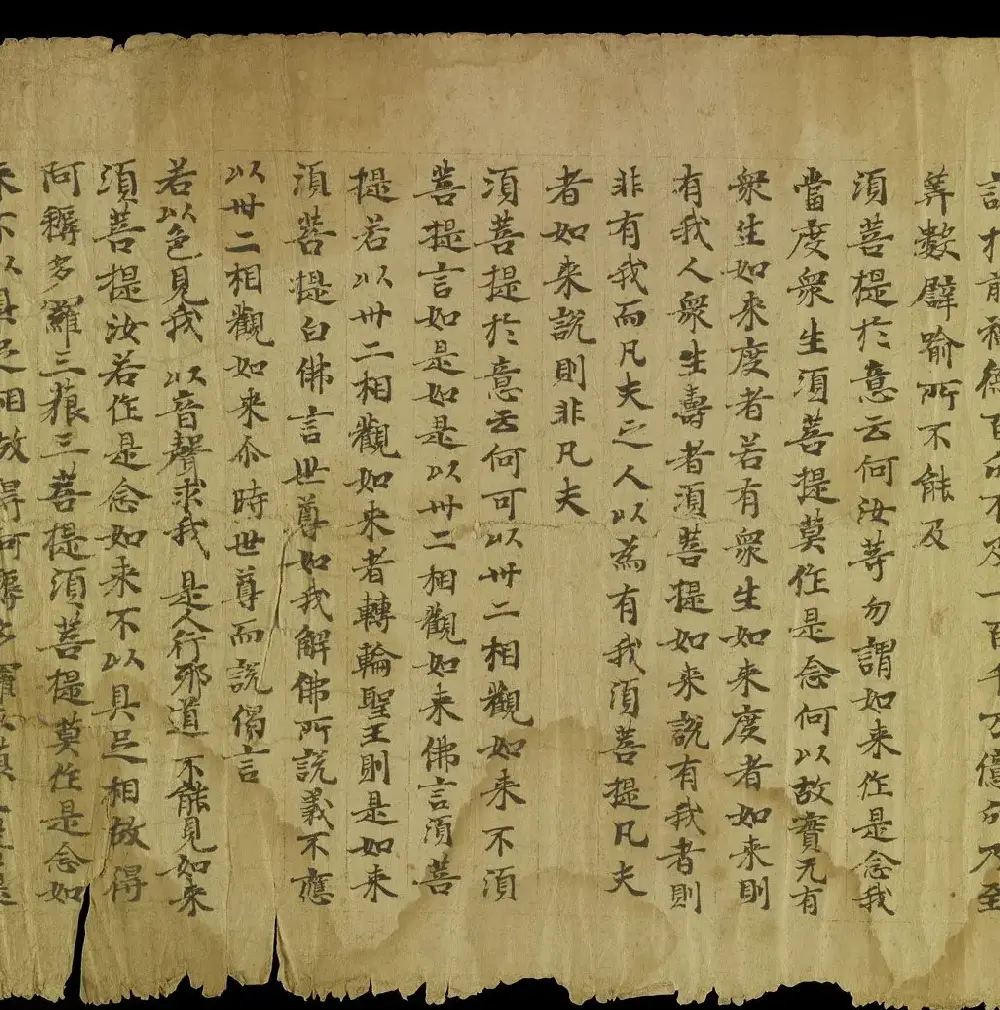 說於前福德百分不及一百千万億分乃至
筭數譬喻所不能及
須菩提於意云何汝等勿謂如来作是念我
當度衆生須菩提莫作是念何以故實无有
衆生如来度者若有衆生如来度者如来則
有我人衆生壽者須菩提如来說有我者則
非有我而凡夫之人以為有我須菩提凡夫
者如来說則非凡夫
須菩提於意云何可以卅二相觀如来不須
菩提言如是如是以卅二相觀如来佛言須菩
提若以卅二相觀如来者轉輪聖王則是如来
須菩提白佛言世尊如我解佛所說義不應
以卅二相觀如来尒時世尊而說偈言
若以色見我 以音聲求我 是人行邪道 不能見如来
須菩提汝若作是念如来不以具足相故得
阿耨多羅三藐三菩提須菩提莫作是念如
来不以具足相故得阿耨多羅三藐三菩提